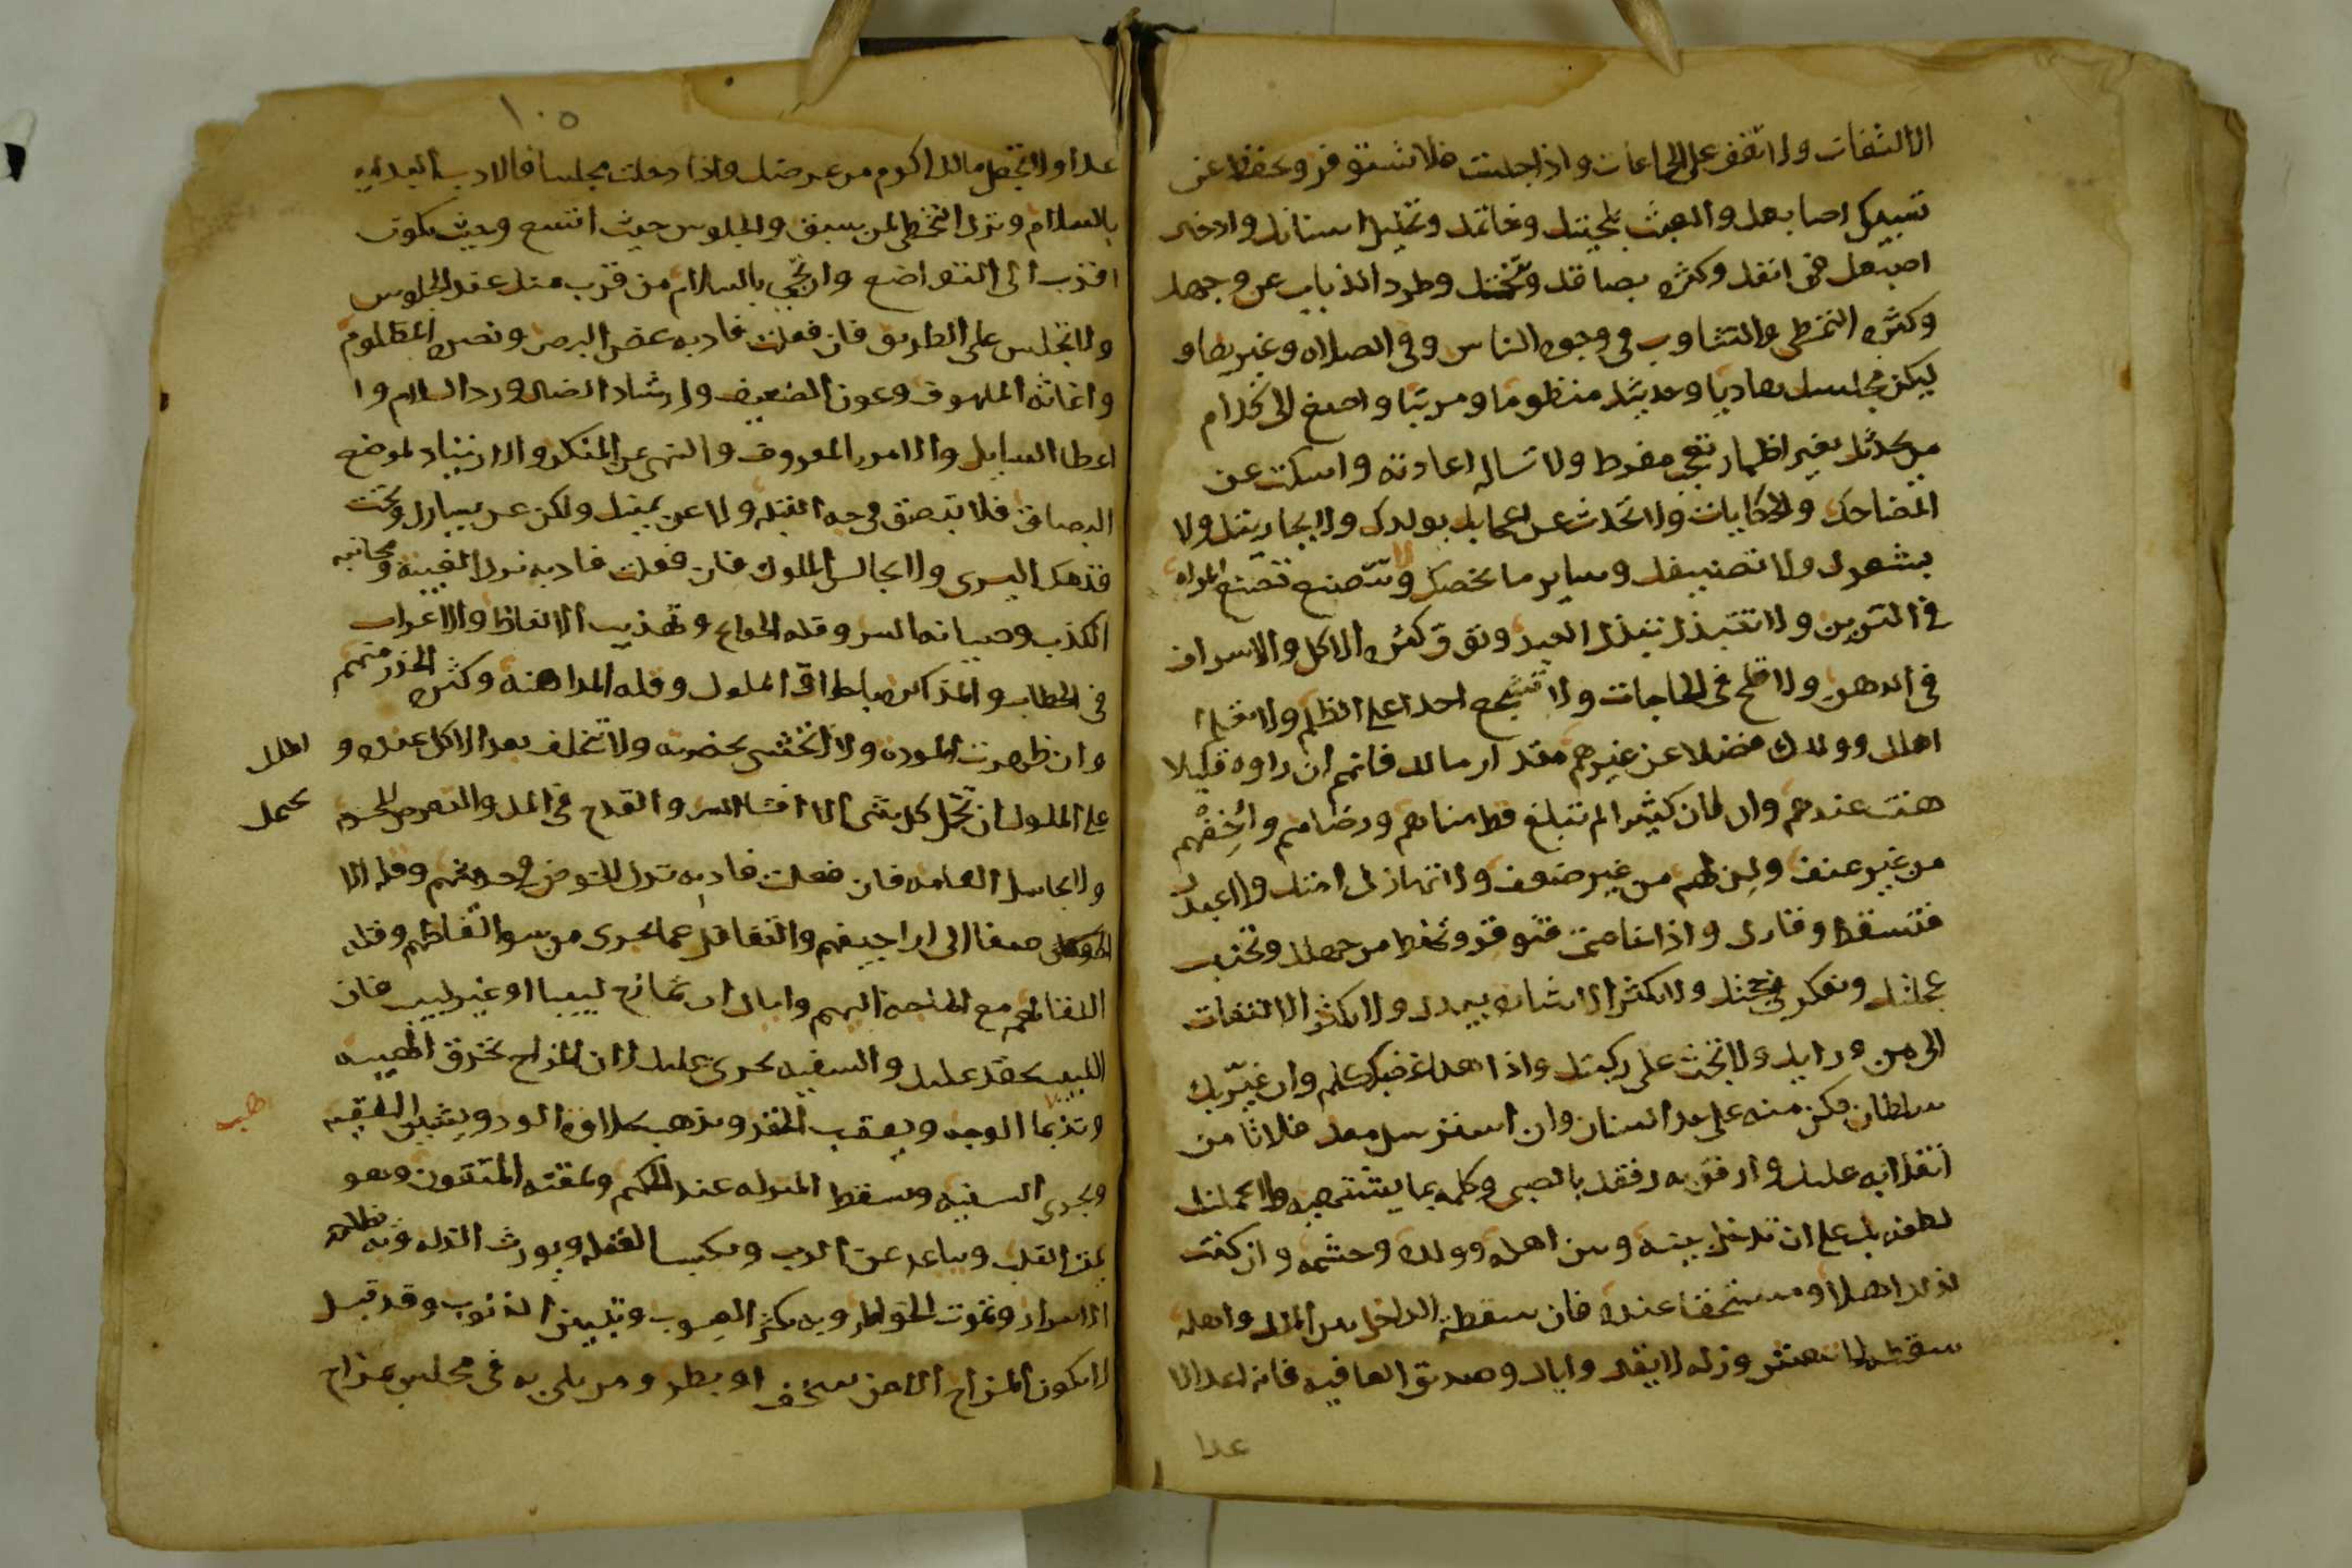 الالتفات ولا تقف على الجماعات واذا جلست فلا تستوفز وتحفظ عن
تشبيك اصابعك والعبث بلحيتك وخاتمك وتخليل اسنانك وادخال
اصبعك في انفك وكثره بصاقك وتنخمك وطرد الذباب عن وجهك
وكثره التمطي والتثاوب في وجوه الناس وفي الصلاه وغيرها و
ليكن مجلسك هاديا وحديثك منظوما ومرتبا واصغ الى كلام
من يحدثك بغير اظهار تعجب مفرط ولا تساله اعادته واسكت عن
المضاحك والحكايات ولا تحدث عن اعجابك بولدك ولا بجاريتك ولا
بشعرك ولا تصنيفك وساير ما يخصك ولا تتصنع تصنع المراه
في التزين ولا تتبذل تبذل العبد وتوق كثره الاكل والاسراف
في الدهن ولا تلح في الحاجات ولا تشجع احدا على الظلم ولا تعلم
اهلك وولدك فضلا عن غيرهم مقدار مالك فانهم ان راوه قليلا
هنت عندهم وان كان كثيرا لم تبلغ قط رضاهم واخفهم
من غير عنف ولن لهم من غير ضعف ولا تهازل امتك ولا عبدك
فتسقط وقارك واذا خاصمت فتوقر وتحفظ من جهلك وتجنب
عجلتك وتفكر في حجتك ولا تكثر الاشاره بيدك ولا تكثر الالتفات
الى من ورايك ولا تجث على ركبتك واذا هدا غضبك فتكلم وان قربك
سلطان فكن منه على حد السنان وان استرسل معك فلا تامن
انقلابه عليك وارفق به رفقك بالصبي وكلمه بما يشتهيه ولا يحملنك
لطفه بك على ان تدخل بينه وبين اهله وولده وحشمه وان كنت
لذلك اهلا ومستحقا عنده فان سقطة الداخل بين الملك واهله
سقطه لا تنعش وزله لا تقال واياك وصديق العافيه فانه اعدا الا
عدا
١٠٥
عدا ولا تجعل مالك اكرم من عرضك واذا دخلت مجلسا فالادب البدايه
بالسلام وترك التخطي لمن سبق والجلوس حيث اتسع وحيث يكون
اقرب الى التواضع وان تحيي بالسلام من قرب منك عند الجلوس
ولا تجلس على الطريق فان فعلت فادبه غض البصر ونصره المظلوم
واغاثه الملهوف وعون الضعيف وارشاد الضال ورد السلام وا
اعطا السايل والامر بالمعروف والنهي عن المنكر والارتياد لموضع
البصاق فلا تبصق في جه القبله ولا عن يمينك ولكن عن يسارك وتحت
قدمك اليسرى ولا تجالس الملوك فان فعلت فادبه ترك الغيبة ومجانبه
الكذب وصيانه السر وقله الحوايج وتهذيب الالفاظ والاعراب
في الخطاب والمذاكره باخلاق الملوك وقله المداهنه وكثره الحذر منهم
وان ظهرت الموده ولا تتجشى بحضرته ولا تتخلل بعد الاكل عنده و
الملك
على الملوك ان تحمل كل شي الا افشا السر والقدح في الملك والتعرض للحرم
يحمل
ولا تجالس العامه فان فعلت فادبه ترك الخوض في حديثهم وقله الا
صغا الى اراجيفهم والتغافل عما يجري من سو الفاظهم وقله
اللقا لهم مع الحاجه اليهم واياك ان تمازح لبيبا او غير لبيب فان
اللبيب يحقد عليك والسفيه يجري عليك لان المزاح يخرق الهيبه
ويذهب ما الوجه ويعقب الحقد ويذهب بحلاوه الود ويشين الفقيه
ويجري السفيه ويسقط المنزله عند الحكيم ويمقته المتقون وهو
يميت القلب ويباعد عن الرب ويكسب الغفله ويورث الذله وبه تظلم
الاسرار وتموت الخواطر وبه يكثر العيوب وتبين الذنوب وقد قيل
لا يكون المزاح الا من سخف او بطر ومن بلي به في مجلس بمزاح